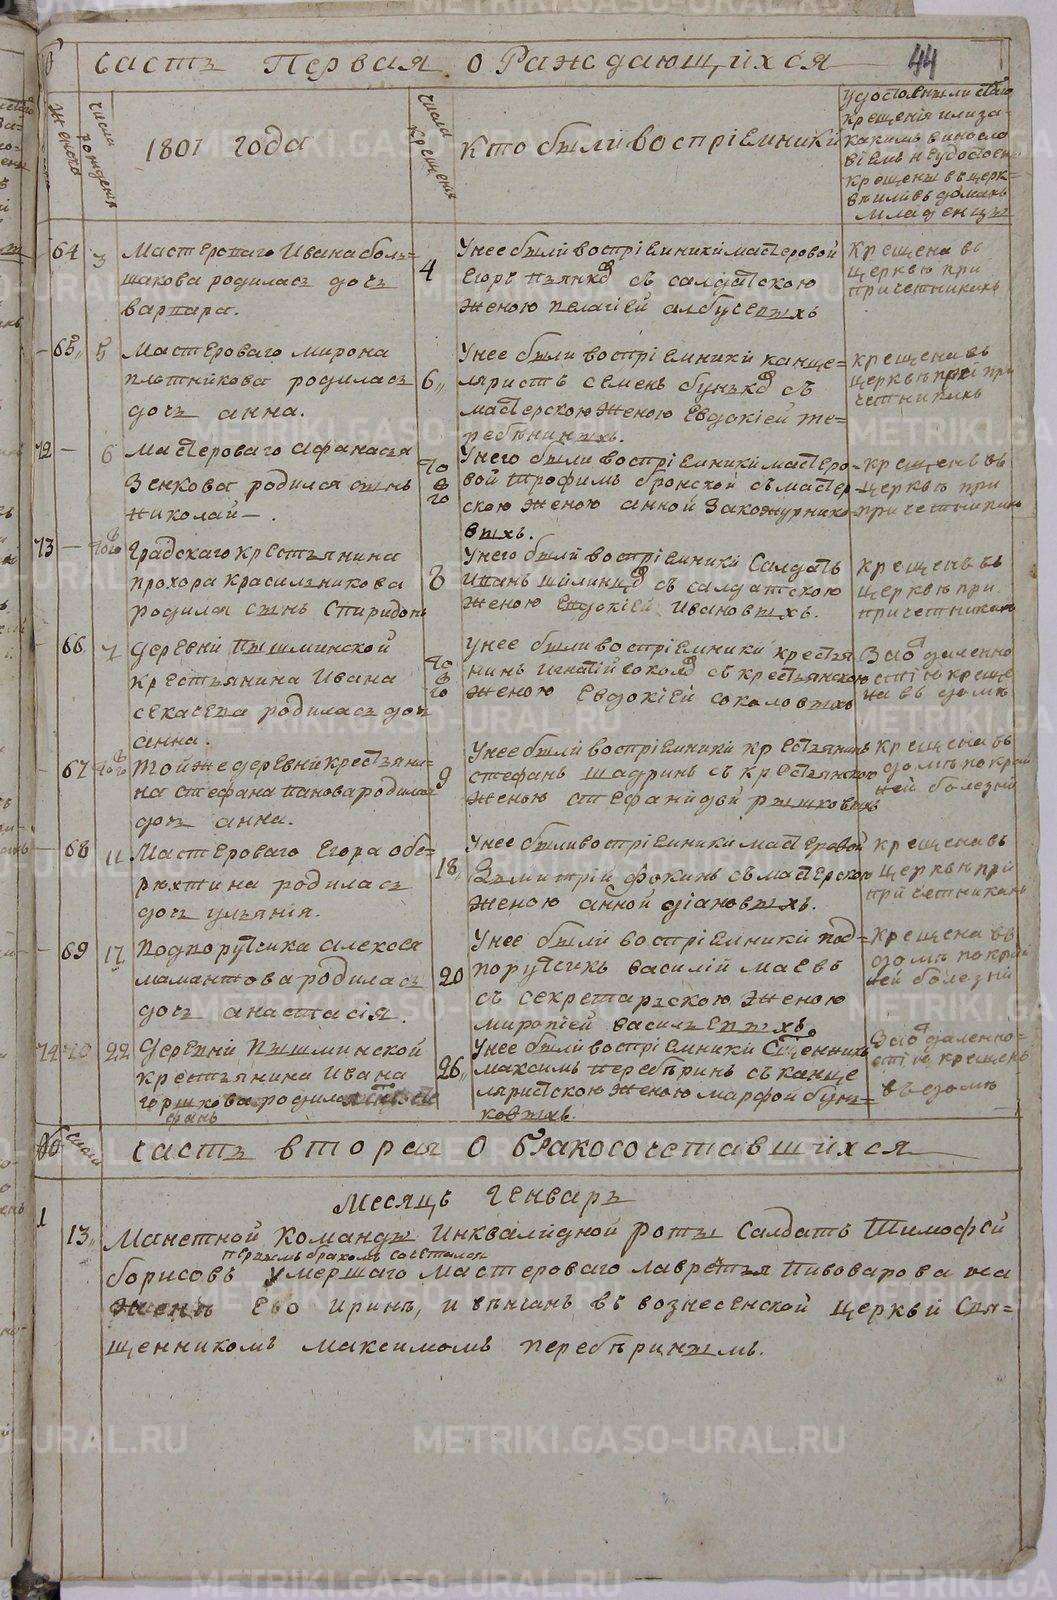 часть Первая о Раждающихся
44
женска
числа рождения
1801 года
числа крещения
кто были воспрiемники
удостоены ли святаго
крещенiя или за
какимъ в иносло
вiемъ неудостоены
крещены в церк=
ве или въ домахъ
младенцы
64 3 Мастерваго Ивана боль=
шакова родилась дочь
варвара.
4
Унее были воспрiемники мастеровой
Егоръ пьянковъ съ салдатскою
женою пелагiей албусевыхъ
крещена въ
церквѣ при
причетникахъ
65 5 Мастероваго мирона
плотникова родилась
дочь анна.
6
Унее были воспрiемники канце=
ляристъ семенъ бунковъ съ
мастерскою женою Евдокiей те=
ребѣниныхъ.
крещена въ
церквѣ при при
четникахъ
72 6 Мастероваго афанасья
Зенкова родился сынъ
николай.
того
Унего были воспрiемники мастеро
вой трофимъ бронской съ мастер
скою женою анной Закожурнико
выхъ.
крещенъ въ
церквѣ при
причетникахъ
73 того градскаго крестьянина
прохора красильникова
родился сынъ спиридонъ
8
Унего были воспрiемники Салдатъ
Иванъ шилинцовъ съ салдатскою
женою Евдокiей Ивановыхъ.
крещенъ въ
церквѣ при
причетникахъ
66 7 деревни пышминской
крестьянина Ивана
секасева родилась доч
анна.
того
Унее были воспрiемники крестья
нинъ игнатiй соколовъ съ крестьянскою
женою Евдокiей соколовыхъ
За отдаленно
стiю креще
на въ домѣ
67 того той же деревни крестьяни=
на стефана панова родилась
дочь анна.
9
Унее были воспрiемники крестьянинъ
стефанъ шадринъ съ крестьянскою
женою стефанидой рышковыхъ
крещена въ
домѣ по край
ней болезни
68 11 Мастероваго Егора обе=
рюхтина родилась
дочь ульянiя.
18
Унее были воспрiемники мастеровой
Димитрiй фокинъ съ мастерскою
женою анной дiановыхъ.
крещена въ
церквѣ при
причетникахъ
69 17 подпорутчика алексея
мамантова родилась
дочь анастасiя.
20
Унее были воспрiемники под=
порутчикъ василiй маевъ
съ секретарскою женою
миропiей васильевыхъ.
крещена въ
домѣ по край
ней болезни
74 22 деревни пышминской
крестьянина Ивана
горшкова родился сынъ сте
фанъ
26
Унее были воспрiемники Священникъ
максимъ перебѣринъ съ канце
ляристскою женою марфой бун=
ковыхъ.
За отдаленно
стiю крещенъ
въ домѣ
часть вторая о бракосочетавшихся
месяцъ Генварь
1 13 Манетной команды Инквалидной роты Салдатъ Тимофей
первымъ бракомъ сочетался
борисовъ умершаго мастероваго лаврентья пивоварова на
женѣ Ево иринѣ, и вѣнчанъ въ вознесенской церкви свя=
щенникомъ максимомъ перебѣринымъ.